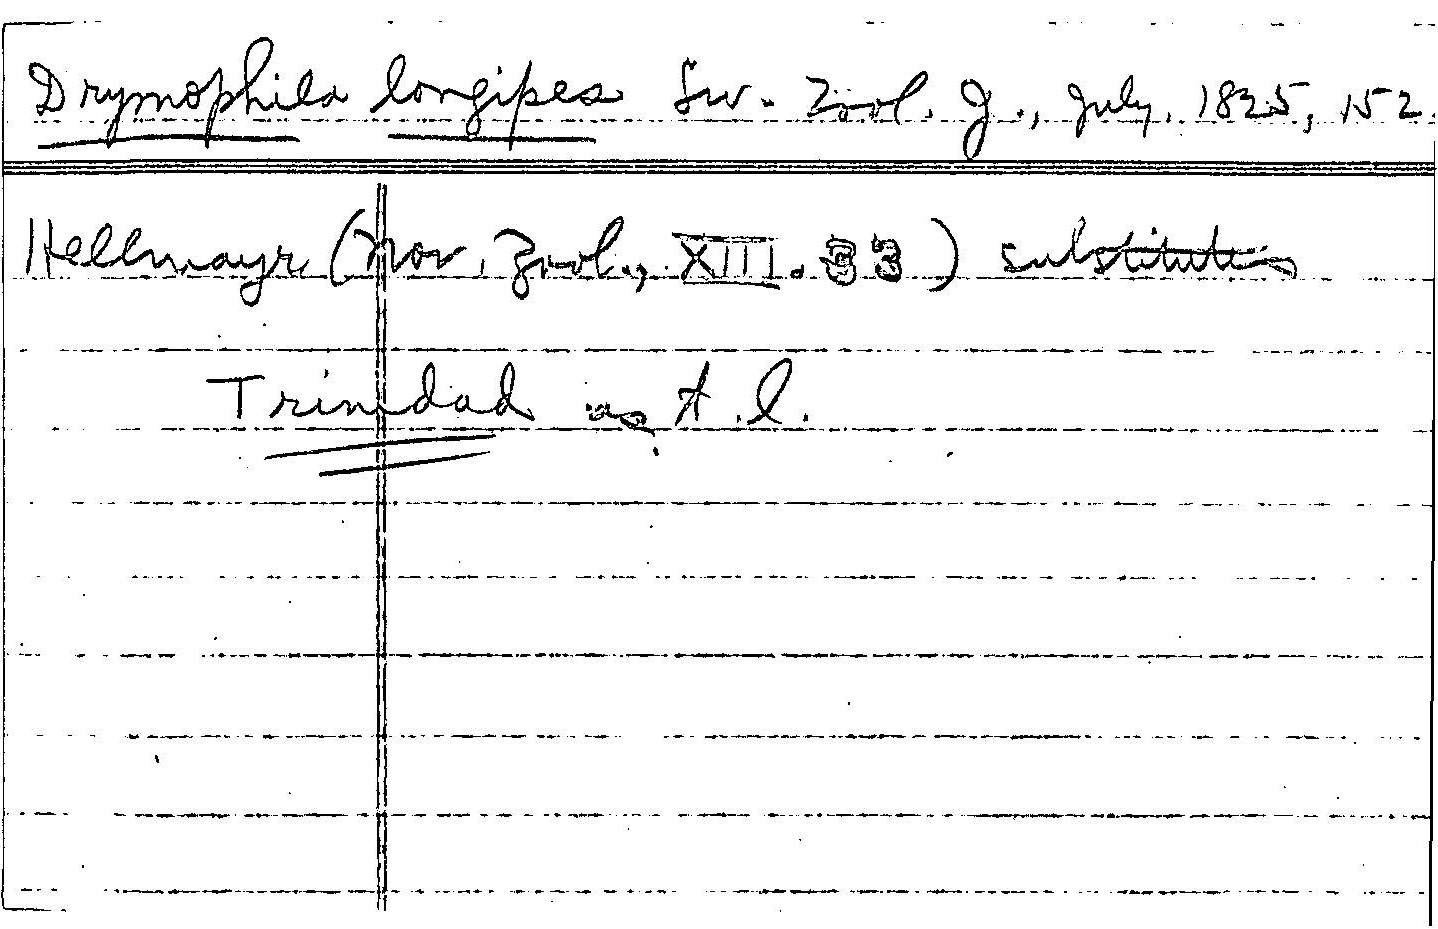 Drymophila longipes Sw. Zool. J., July, 1825, 152.
Hellmayr (Nov. Zool., XIII. 33) substitutes
Trinidad as t.l.